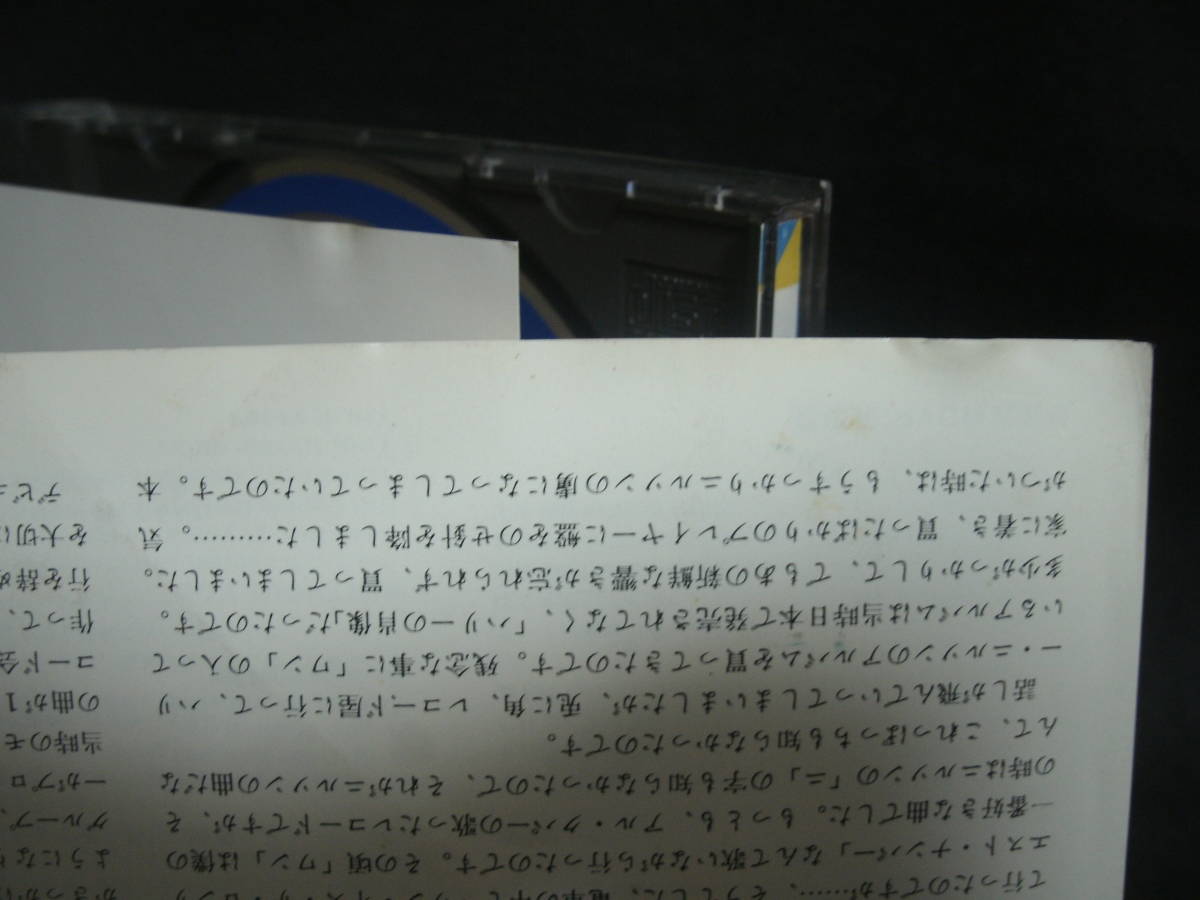 て行ったのですが……、そうしたら、電車の中で
エスト・ナンバー」なんて歌いながら行ったのです。その頃「ワン」は僕の
一番好きな曲でした。もっとも、アル・クパーの歌ったレコードですが、そ
の時はニルソンの「ニ」の字も知らなかったので、それがニルソンの曲だな
んて、これっぽっちも知らなかったのです。
話しが飛んでいってしまいましたが、兎に角、レコード屋に行って、ハリ
ー・ニルソンのアルバムを買ってきたのです。残念な事に「ワン」の入って
いるアルバムは当時日本で発売されてなく、「ハリーの肖像」だったのです。
多少がっかりして、でもあの新鮮な響きが忘れられず、買ってしまいました。
家に着き、買ったばかりのプレイヤーに盤をのせ針を降しました………。気
がついた時は、もうすっかりニルソンの虜になってしまっていたのです。本
ようになり
グループ、
ーがプロ
当時のモ
の曲が1
コード会
作って、
行を辞め
を大切に
デビュ